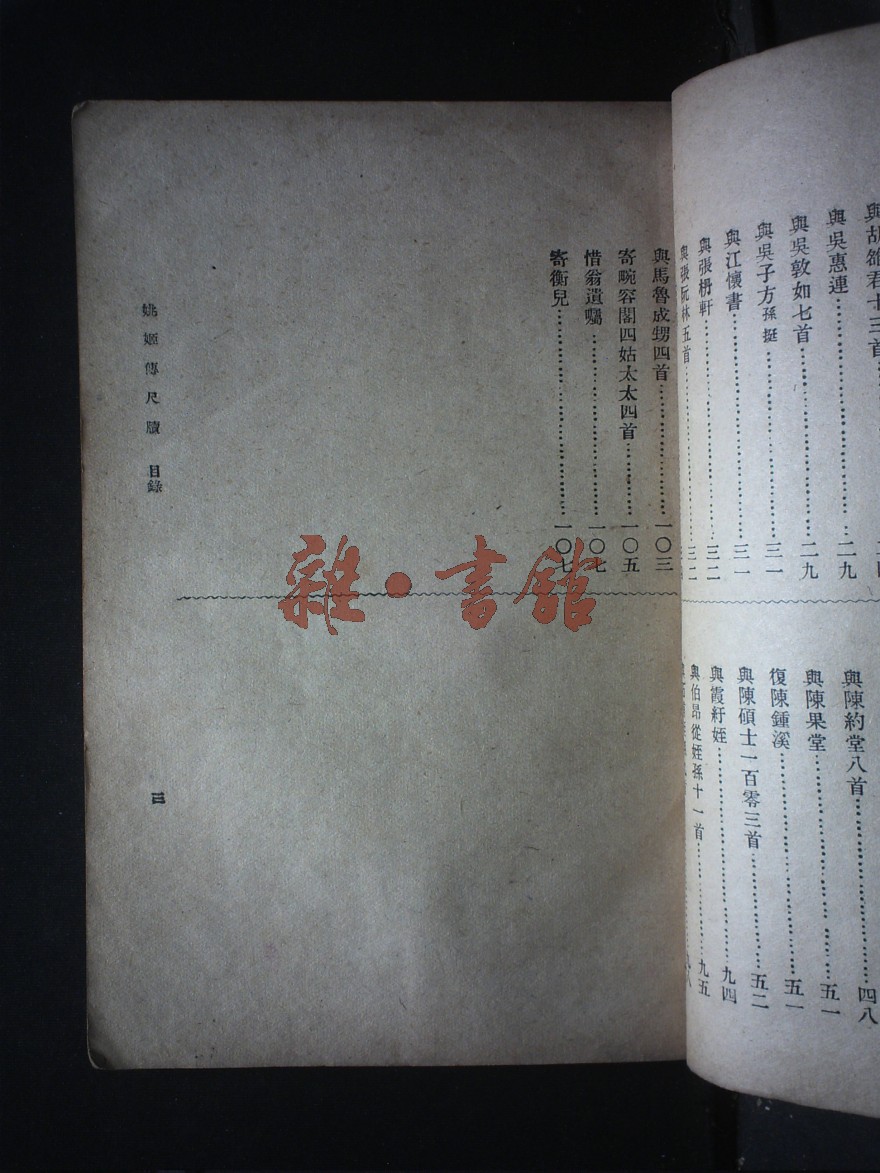 與胡雒君十三首
與吳惠連……二九
與吳敦如七首……二九
與吳子方孫挺……三一
與江懷書……三一
與張枬軒……三二
與張阮林五首……三二
與陳約堂八首……四八
與陳果堂……五一
復陳鍾溪……五一
與陳碩士一百零三首……五二
與霞紆姪……九四
與伯昂從姪孫十一首……九五
與馬魯成甥四首……一〇三
寄畹容閣四姑太太四首……一〇五
惜翁遺囑……一〇七
寄衡兒……一〇七
姚姬傳尺牘 目錄
三
雜·書館